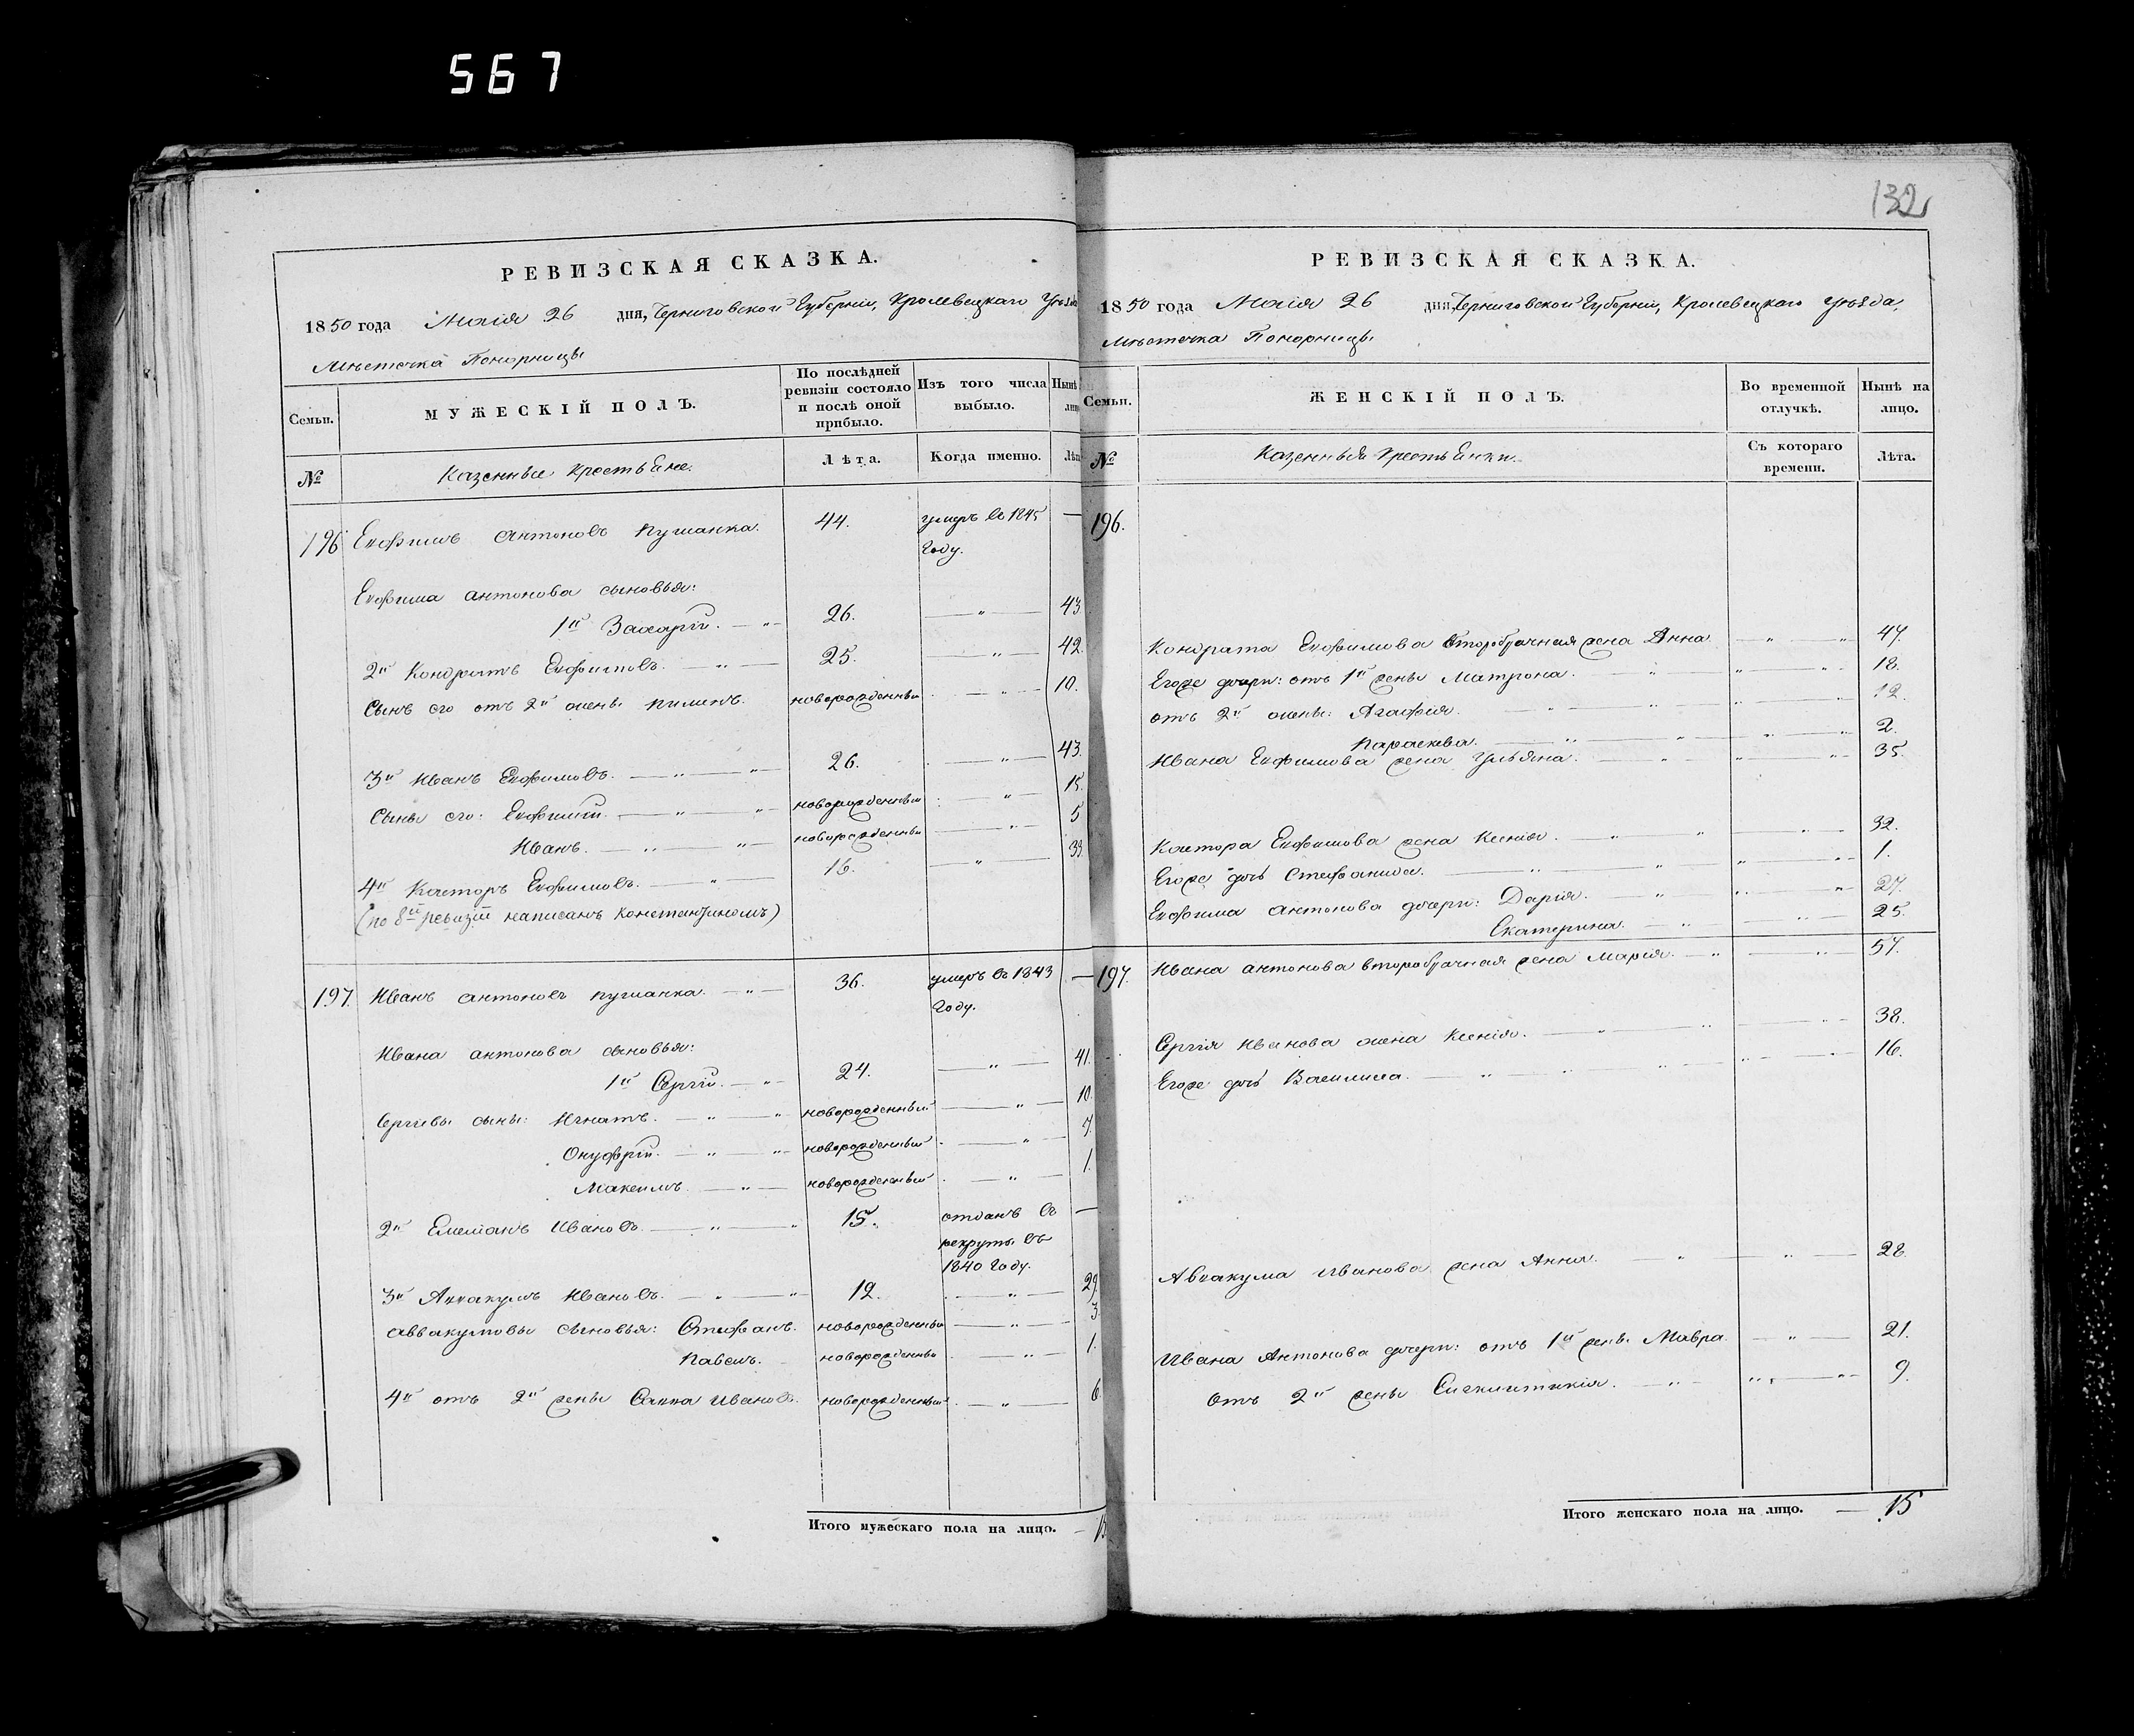 567
132
РЕВИЗСКАЯ СКАЗКА.
1850 года Маія 26 дня, Черниговской Губерніи, Кролевецкаго Уѣзда
Мѣстечка Понорницы
Семьи.
МУЖЕСКІЙ ПОЛЪ.
По послѣдней ревизіи состояло и послѣ оной прибыло.
Изъ того числа выбыло.
Нынѣ
лицо
№
Казенные крестьяне.
Лѣта.
Когда именно.
Лѣта
196 Евфимъ Антоновъ Пушанка. 44. умеръ въ 1845 —
году.
Евфима Антонова сыновья:
1й Захарій. — „ — 26. — „ — 43.
2й Кондратъ Евфимовъ. — „ — 25. — „ — 42.
Сынъ его отъ 2й жены Пименъ. новорожденный — „ — 10.
3й Иванъ Евфимовъ. — „ — „ 26. — „ — 43.
Сыны его: Евфимій. — „ — „ новорожденный — „ — 15.
Иванъ. — „ — „ новорожденный — „ — 5
4й Касторъ Евфимовъ. — „ — 16. — „ — 33.
(по 8й ревизіи написанъ Константиномъ)
197. Иванъ Антоновъ Пушанка. — „ — 36. умеръ въ 1843 —
году.
Ивана Антонова сыновья:
1й Сергій. — „ — 24. — „ — 41.
Сергіевы сыны: Игнатъ. — „ — „ новорожденный — „ — 10.
Онуфрій. — „ — „ новорожденный — „ — 7.
Максимъ. — „ — новорожденный — „ — 1.
2й Емельянъ Ивановъ. — „ — „ 15. отданъ въ —
рекруты въ
1840 году.
3й Аввакумъ Ивановъ. — „ — „ 12. — „ — 29.
Аввакумовы сыновья: Стефанъ. новорожденный — „ — 3.
Павелъ. новорожденный — „ — 1.
4й отъ 2й жены Савва Ивановъ. новорожденный — „ — 6.
Итого мужескаго пола на лицо. — 15
РЕВИЗСКАЯ СКАЗКА.
1850 года Маія 26 дня, Черниговской Губерніи, Кролевецкаго Уѣзда,
Мѣстечка Понорницы
Семьи.
ЖЕНСКІЙ ПОЛЪ.
Во временной отлучкѣ.
Нынѣ на лицо.
№
Казенныя крестьянки.
Съ котораго времени.
Лѣта.
196.
Кондрата Евфимова второбрачная жена Анна. — „ — „ 47.
Егоже дочери: отъ 1й жены Матрона. — „ — „ — „ 18.
отъ 2й жены: Агафія. — „ — „ — „ — „ 12.
Параскева. — „ — „ — „ — „ 2.
Ивана Евфимова жена Ульяна. — „ — „ — „ 35.
Кастора Евфимова жена Ксенія. — „ — „ — „ — 32.
Егоже дочь Стефанида. — „ — „ — „ — „ 1.
Евфима Антонова дочери: Дарія. — „ — „ — „ 27.
Екатерина. — „ — „ — 25.
197. Ивана Антонова второбрачная жена Марія. — „ — „ — 57.
Сергія Иванова жена Ксенія. — „ — „ — „ — 38.
Егоже дочь Василиса. — „ — „ — „ — „ — „ 16.
Аввакума Иванова жена Анна. — „ — „ — 28.
Ивана Антонова дочери: отъ 1й жены Мавра. — „ — 21.
Отъ 2й жены Сигклитикія. — „ — „ — „ 9.
Итого женскаго пола на лицо. — 15